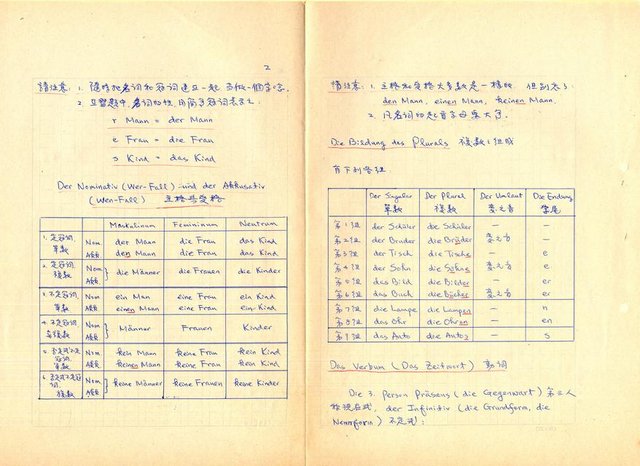 2
請注意: 1. 隨時把名詞和冠詞連在一起 當做一個字唸.
2. 名詞的性 用簡字冠詞表示之:
r Mann = der Mann
e Frau = die Frau
s Kind = das Kind
Der Nominativ (Wer-Fall) und der Akkusativ
(Wen-Fall) 主格與受格
Maskulinum Femininum Neutrum
1. 定冠詞, 單數 Nom der Mann die Frau das Kind
Akk den Mann die Frau das Kind
2. 定冠詞, 複數 Nom Akk } die Männer die Frauen die Kinder
3. 不定冠詞 單數 Nom ein Mann eine Frau ein Kind
Akk einen Mann eine Frau ein Kind
4. 不定冠詞 複數 Nom Akk } Männer Frauen Kinder
5. 單數 Nom kein Mann keine Frau kein Kind
Akk keinen Mann keine Frau kein Kind
6. 複數 Nom Akk } keine Männer keine Frauen keine Kinder
請注意: 1. 主格和受格大多數是一樣的, 但別忘了:
den Mann, einen Mann, keinen Mann.
2. 凡名詞的起首字母要大寫.
Die Bildung des Plurals 複數之組成
有下列各組:
Der Singular Der Plural Der Umlaut Die Endung
單數 複數 變元音 字尾
第1組 der Schüler die Schüler — —
第2組 der Bruder die Brüder 變元音 —
第3組 der Tisch die Tische — e
第4組 der Sohn die Söhne 變元音 e
第5組 das Bild die Bilder — er
第6組 das Buch die Bücher 變元音 er
第7組 die Lampe die Lampen — n
第8組 das Ohr die Ohren — en
第9組 das Auto die Autos — s
Das Verbum (Das Zeitwort) 動詞
Die 3. Person Präsens (die Gegenwart) 第三人
稱現在式, der Infinitiv (die Grundform, die
Nennform) 不定式: